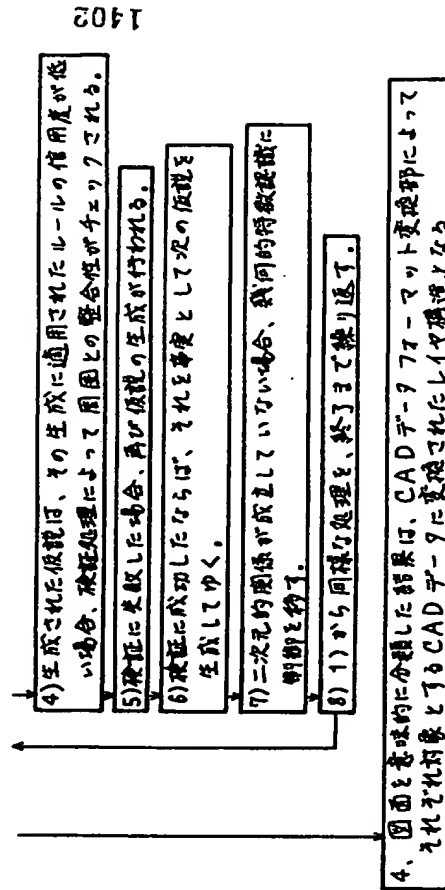 1402
4)生成された仮説は、その生成に適用されたルールの信用度が低
い場合、検証処理によって周囲との整合性がチェックされる。
5)検証に失敗した場合、再び仮説の生成が行われる。
6)検証に成功したならば、それを事実として次の仮説を
生成してゆく。
7)二次元的関係が成立していない場合、幾何的特徴認識に
制御を移す。
8) 1)から同様な処理を、終了まで繰り返す。
4、図面を意味的に分類した結果は、CADデータフォーマット変換部によって
それぞれ対象とするCADデータに変換されたレイヤ構造となる